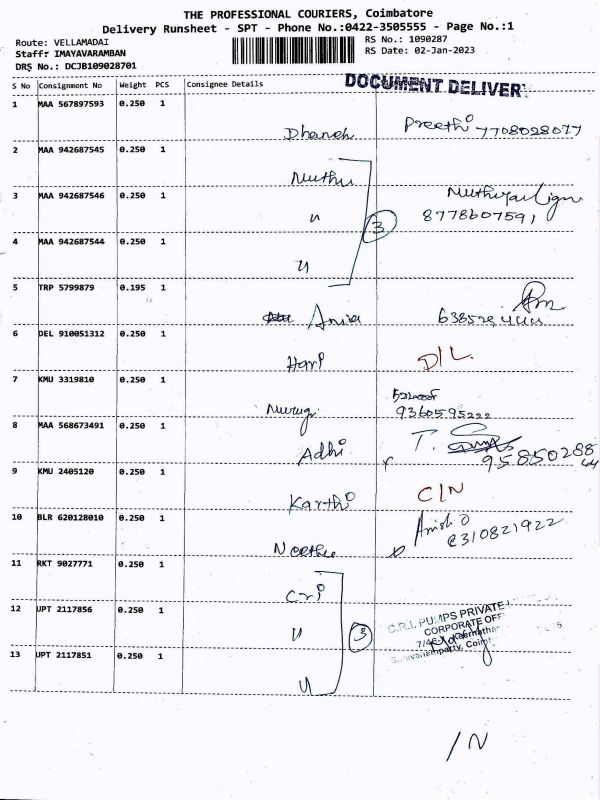 THE PROFESSIONAL COURIERS, Coimbatore
Delivery Runsheet - SPT - Phone No.:0422-3505555 - Page No.:1
Route: VELLAMADAI
RS No.: 1090287
Staffr IMAYAVARAMBAN
RS Date: 02-Jan-2023
DRS No.: DCJB109028701
S No Consignment No Weight PCS Consignee Details
DOCUMENT DELIVER
1 MAA 567897593 0.250 1
Dhanesh Preethi 7708028077
2 MAA 942687545 0.250 1
Muthu
3 MAA 942687546 0.250 1
" 3 8778607591
4 MAA 942687544 0.250 1
"
5 TRP 5799879 0.195 1
6 DEL 910051312 0.250 1
Hari D/L
7 KMU 3319810 0.250 1
Murug 9360595222
8 MAA 568673491 0.250 1
Adhi T. 95850288
9 KMU 2405120 0.250 1
Karthi C/N
10 BLR 620128010 0.250 1
8310821922
11 RKT 9027771 0.250 1
Cri
12 UPT 2117856 0.250 1
" 3
C.R.I. PUMPS PRIVATE
CORPORATE OFF
13 UPT 2117851 0.250 1
"
/N